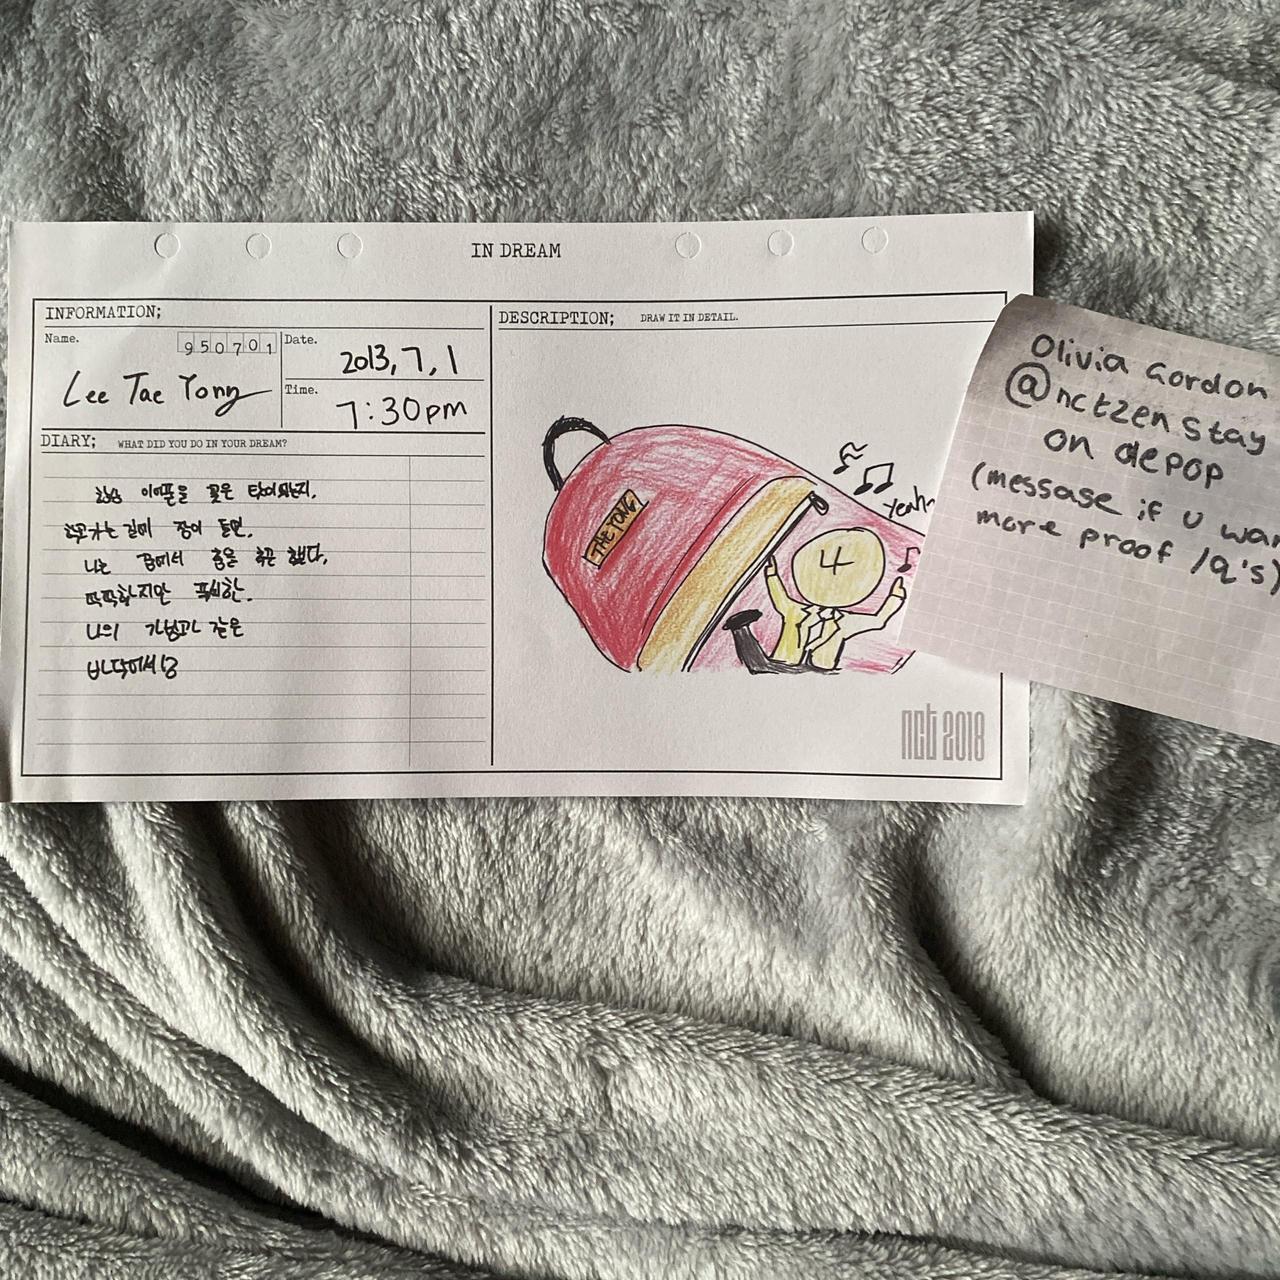 IN DREAM
INFORMATION;
Name.
950701
Lee Tae Yong
Date.
2013, 7, 1
Time.
7:30pm
DIARY; WHAT DID YOU DO IN YOUR DREAM?
항상 이어폰을 꽂은 탓이었는지,
학교가는 길에 잠이 들면,
나는 꿈에서 춤을 추곤 했다,
딱딱하지만 푹신한,
나의 가방과 같은
바닥에서
DESCRIPTION; DRAW IT IN DETAIL.
TAE YONG
Yeah~
4
nct 2018
Olivia Gordon
@nctzen stay
on depop
(message if u
more proof /q's)